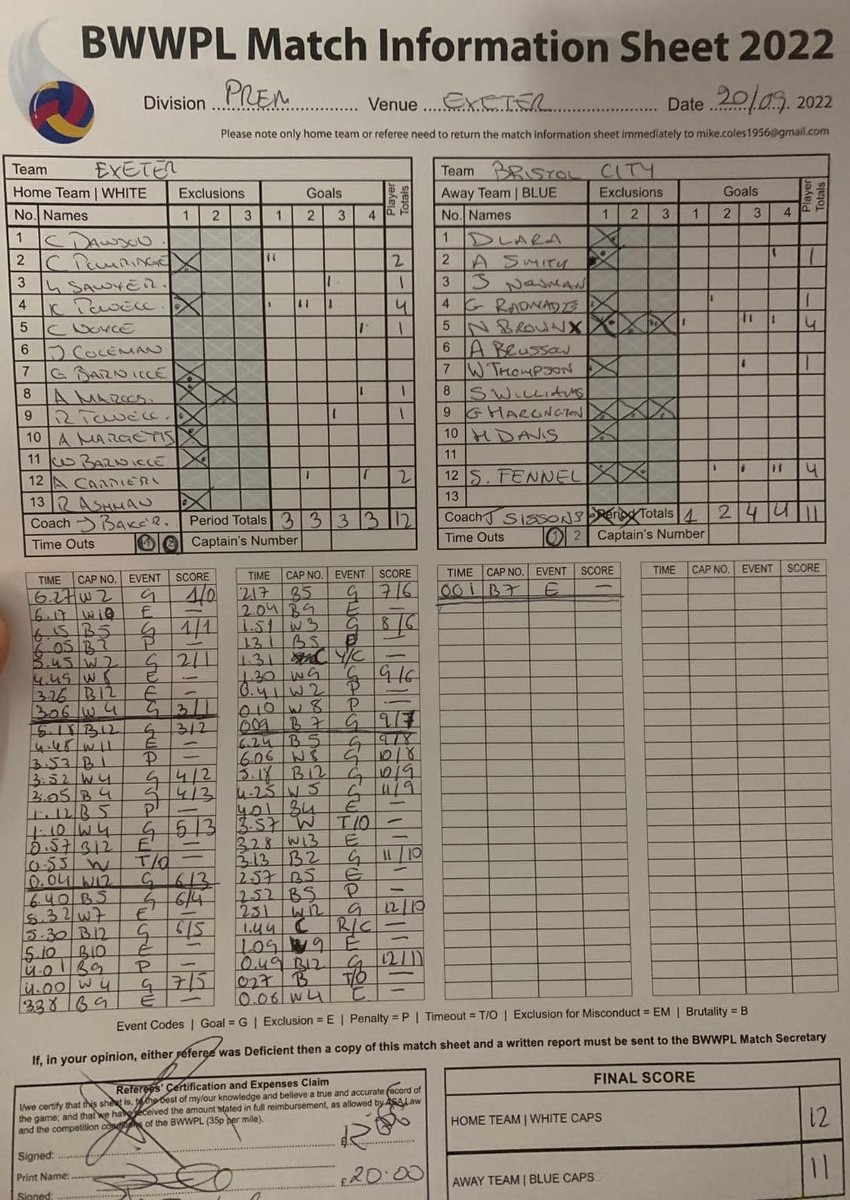 BWWPL Match Information Sheet 2022
Division PREM Venue EXETER Date 20/09. 2022
Please note only home team or referee need to return the match information sheet immediately to mike.coles1956@gmail.com
Team EXETER
Home Team | WHITE Exclusions Goals Player Totals
No. Names 1 2 3 1 2 3 4
1 C DAWSON
2 2
3 G SAWYER. 1
4 K TOWELL. 4
5 1
6 J COLEMAN
7 G BARNICLE
8 1
9 R TOWELL. 1
10 A MARGETTS
11 W BARNICLE
12 A CARRIERI 2
13 R ASHMAN
Coach J BAKER. Period Totals 3 3 3 3 12
Time Outs 1 2 Captain's Number
Team BRISTOL CITY
Away Team | BLUE Exclusions Goals Player Totals
No. Names 1 2 3 1 2 3 4
1 D LARA
2 A SMITH 1
3 J NEWMAN
4 1
5 N BROWN X 4
6 A
7 W THOMPSON 1
8 S WILLIAMS
9 G HARLINGTON
10 H DAVIS
11
12 S. FENNEL 4
13
Coach J SISSONS Period Totals 1 2 4 4 11
Time Outs 1 2 Captain's Number
TIME CAP NO. EVENT SCORE
6.27 W2 G 1/0
6.17 W10 E —
6.15 B5 G 1/1
6.05 B2 P —
5.45 W2 G 2/1
4.49 W8 E —
3.26 B12 E —
3.06 W4 G 3/1
5.18 B12 G 3/2
4.48 W11 E —
3.53 B1 P —
3.52 W4 G 4/2
3.05 B4 G 4/3
1.12 B5 P —
1.10 W4 G 5/3
0.57 B12 E —
0.55 W T/O —
0.04 W12 G 6/3
6.40 B5 G 6/4
5.32 W7 E —
5.30 B12 G 6/5
5.10 B10 E —
4.01 B9 P —
4.00 W4 G 7/5
3.38 B9 E —
TIME CAP NO. EVENT SCORE
2.17 B5 G 7/6
2.04 B9 E —
1.51 W3 G 8/6
1.31 B5 —
1.31 C Y/C —
1.30 W9 G 9/6
0.41 W2 P —
0.10 W8 P —
0.09 B7 G 9/7
6.24 B5 G 9/8
6.06 W8 G 10/8
5.18 B12 G 10/9
4.25 W5 G 11/9
4.01 B4 E —
3.57 W T/O —
3.28 W13 E —
3.13 B2 G 11/10
2.57 B5 E —
2.52 B5 P —
2.51 W12 G 12/10
1.44 C R/C —
1.09 W9 E —
0.49 B12 G 12/11
0.27 B T/O —
0.06 W4 E —
TIME CAP NO. EVENT SCORE
0.01 B7 E —
TIME CAP NO. EVENT SCORE
Event Codes | Goal = G | Exclusion = E | Penalty = P | Timeout = T/O | Exclusion for Misconduct = EM | Brutality = B
If, in your opinion, either referee was Deficient then a copy of this match sheet and a written report must be sent to the BWWPL Match Secretary
Referees' Certification and Expenses Claim
I/we certify that this sheet is, to the best of my/our knowledge and believe a true and accurate record of
the game; and that we have received the amount stated in full reimbursement, as allowed by ASA Law
and the competition conditions of the BWWPL (35p per mile).
Signed:
Print Name: £20.00
Signed:
FINAL SCORE
HOME TEAM | WHITE CAPS 12
AWAY TEAM | BLUE CAPS 11